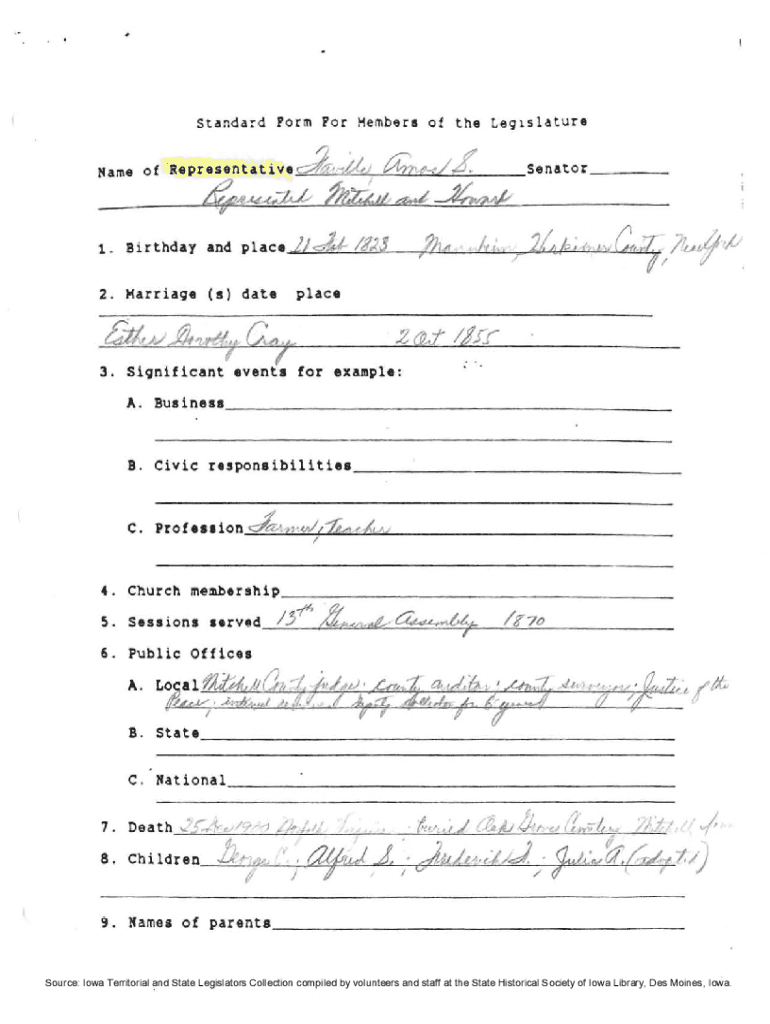 Standard Form For Members of the Legislature
Name of Representative Faville, Amos S. Senator
Represented Mitchell and Howard
1. Birthday and place 21 Feb 1823 Mannheim, Herkimer County, New York
2. Marriage (s) date place
Esther Dorothy Cray 2 Oct 1855
3. Significant events for example:
A. Business
B. Civic responsibilities
C. Profession Farmer, Teacher
4. Church membership
5. Sessions served 13th General Assembly 1870
6. Public Offices
A. Local Mitchell County judge; county auditor; county surveyor; Justice of the
Peace; internal revenue deputy collector for 6 years
B. State
C. National
7. Death 25 Norfolk Virginia - buried Oak Grove Cemetery Mitchell, Iowa
8. Children George C.; Alfred S.; Frederick F.; Julia A. (adopted)
9. Names of parents
Source: Iowa Territorial and State Legislators Collection compiled by volunteers and staff at the State Historical Society of Iowa Library, Des Moines, Iowa.